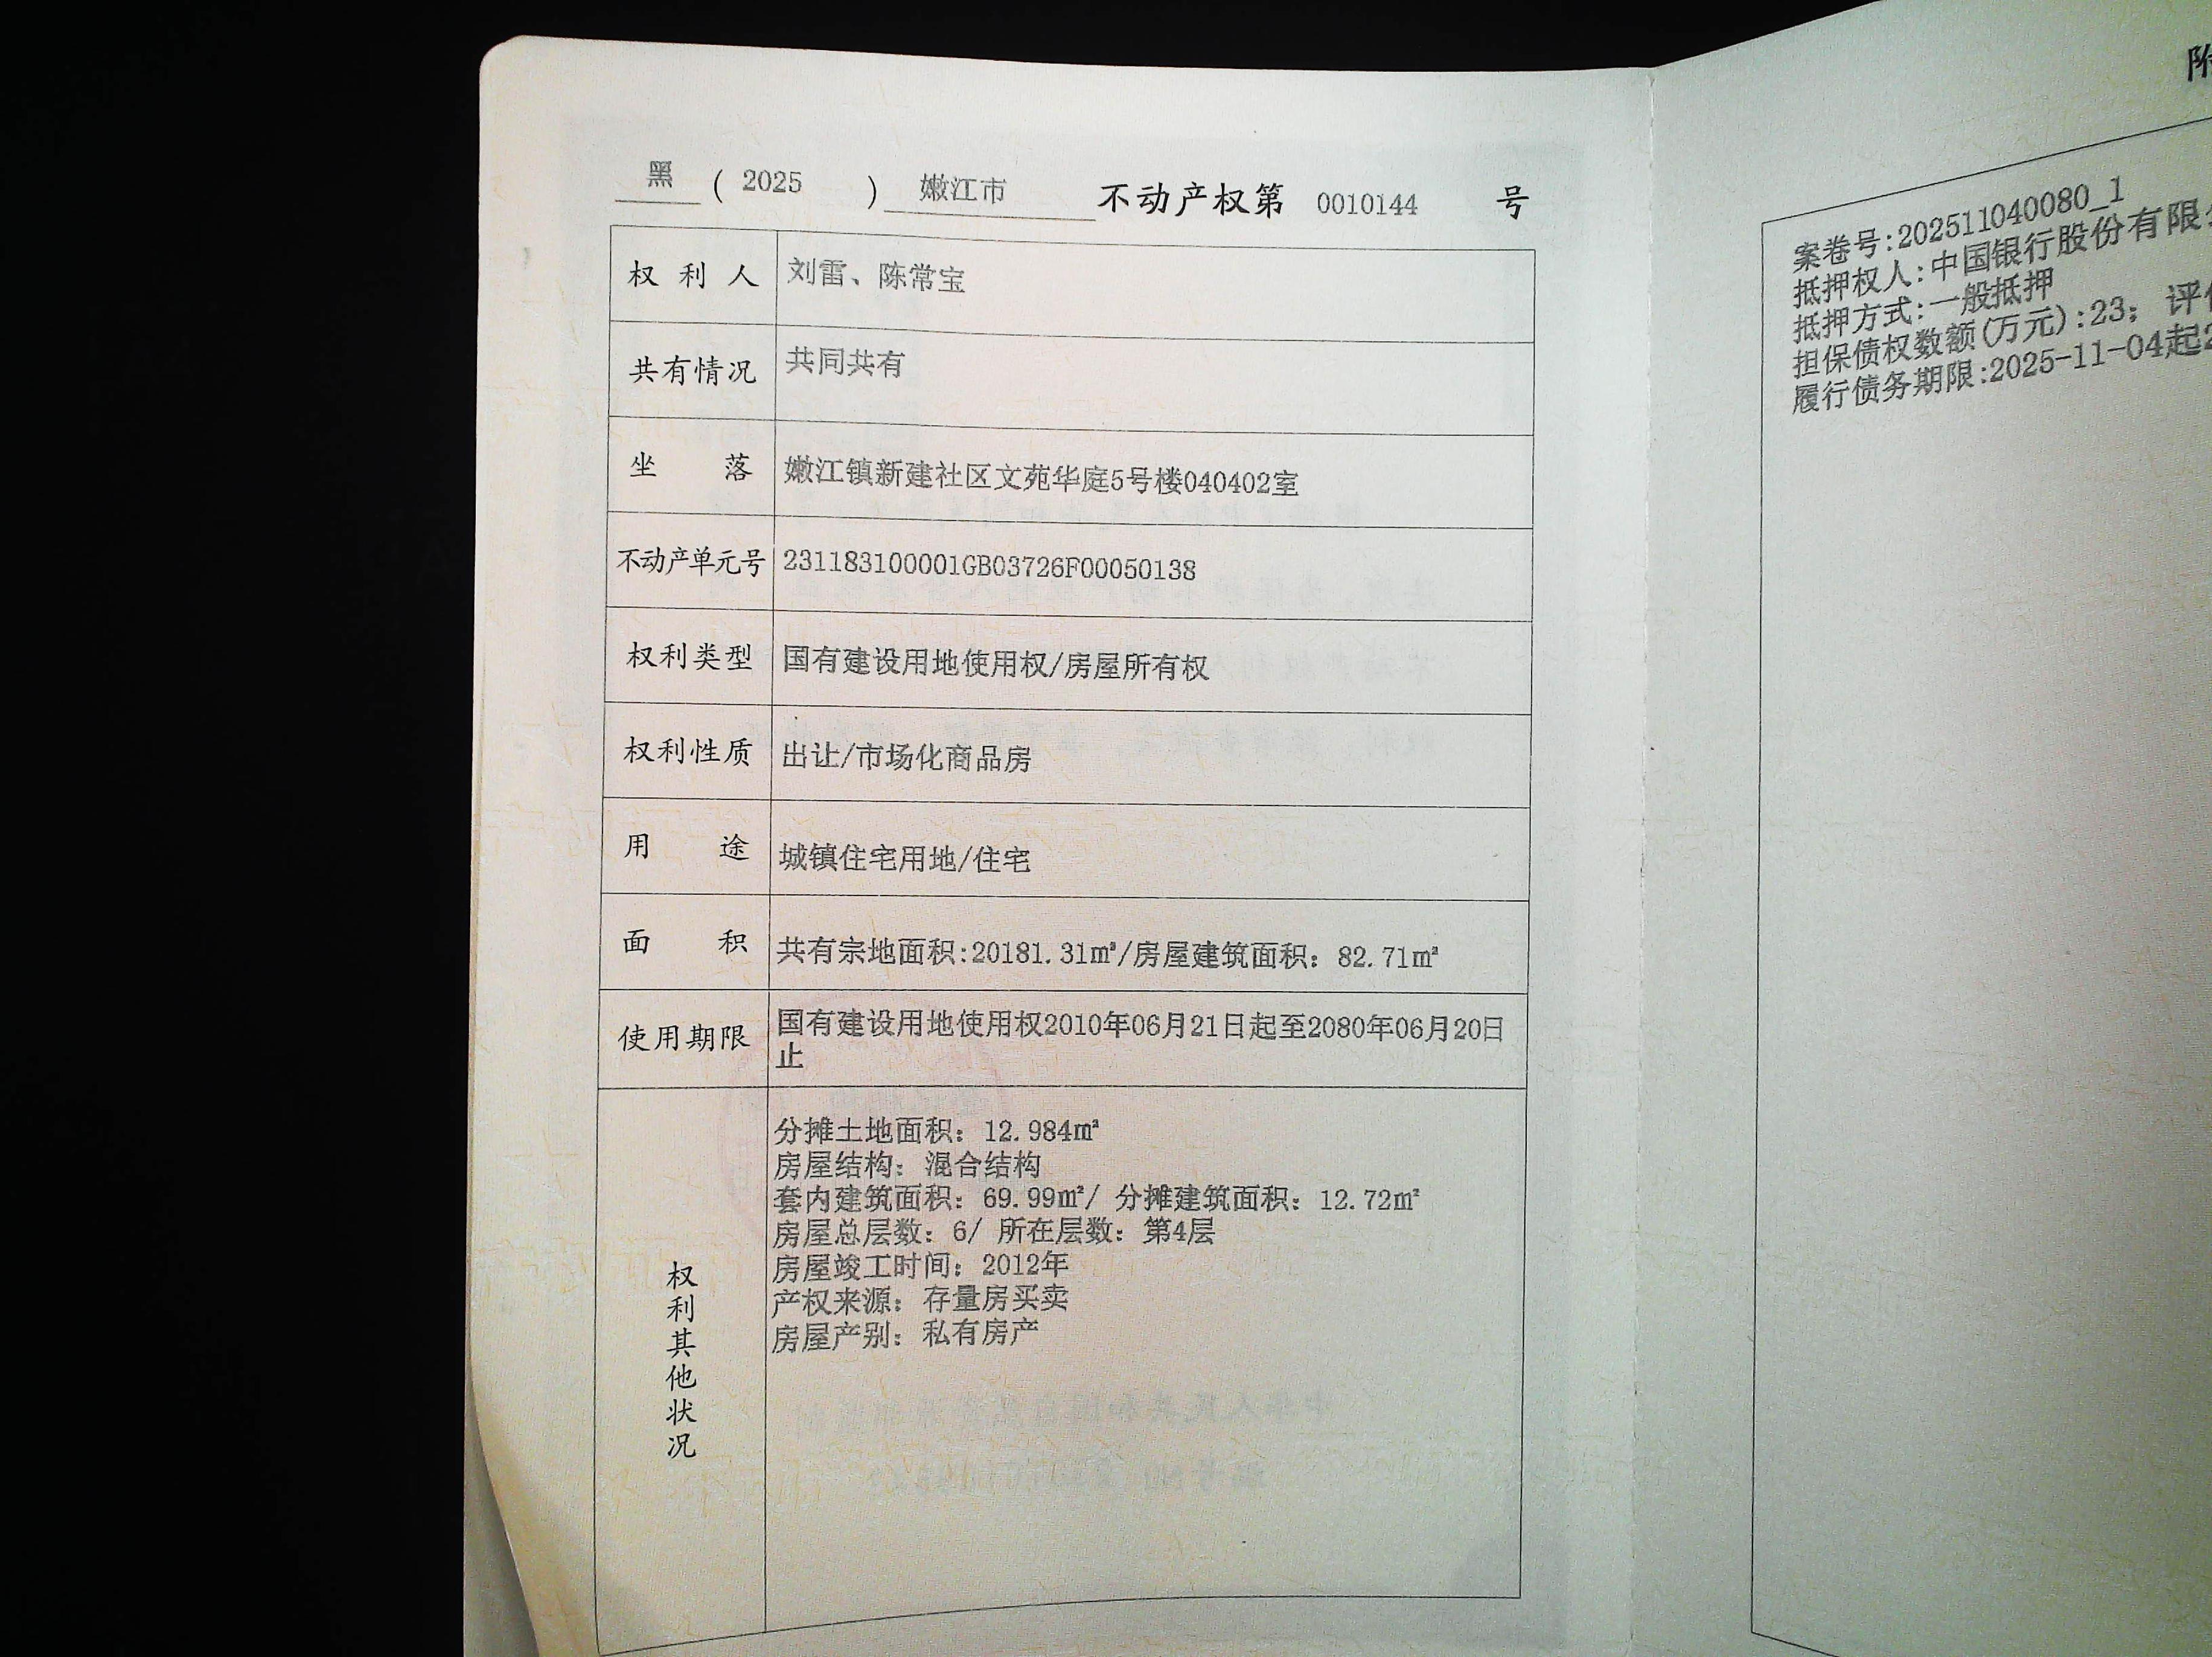 黑 ( 2025 ) 嫩江市 不动产权第 0010144 号
权利人 刘雷、陈常宝
共有情况 共同共有
坐落 嫩江镇新建社区文苑华庭5号楼040402室
不动产单元号 231183100001GB03726F00050138
权利类型 国有建设用地使用权/房屋所有权
权利性质 出让/市场化商品房
用途 城镇住宅用地/住宅
面积 共有宗地面积:20181.31㎡/房屋建筑面积：82.71㎡
使用期限 国有建设用地使用权2010年06月21日起至2080年06月20日
止
权利其他状况
分摊土地面积：12.984㎡
房屋结构：混合结构
套内建筑面积：69.99㎡/ 分摊建筑面积：12.72㎡
房屋总层数：6/ 所在层数：第4层
房屋竣工时间：2012年
产权来源：存量房买卖
房屋产别：私有房产
附
案卷号:202511040080_1
抵押权人:中国银行股份有限
抵押方式:一般抵押
担保债权数额(万元):23； 评
履行债务期限:2025-11-04起2